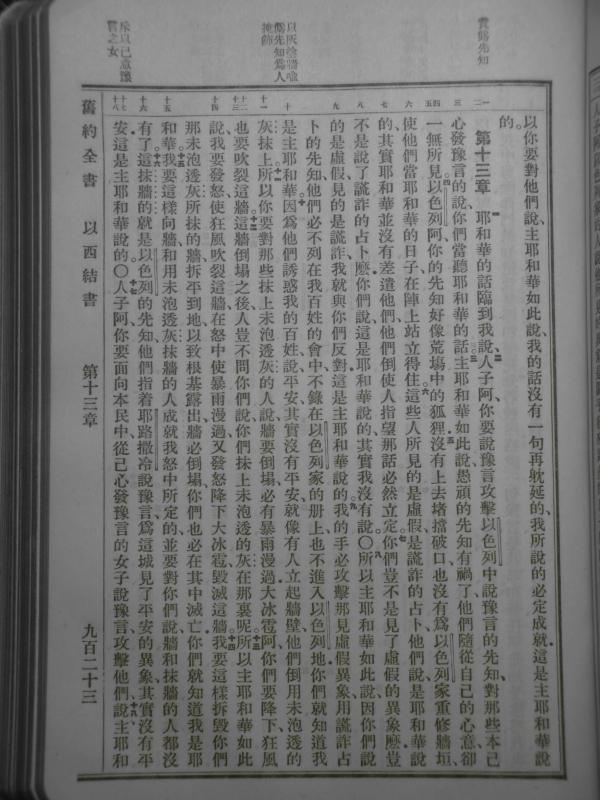 責偽先知
以灰塗牆喻
偽先知為人
掩飾
斥以己意豫
言之女
以你要對他們說、主耶和華如此說、我的話沒有一句再躭延的、我所說的必定成就、這是主耶和華說
的。
第十三章　耶和華的話臨到我說、人子阿、你要說豫言攻擊以色列中說豫言的先知、對那些本己
心發豫言的說、你們當聽耶和華的話。主耶和華如此說、愚頑的先知有禍了、他們隨從自己的心意、卻
一無所見。以色列阿、你的先知好像荒塲中的狐狸。沒有上去堵擋破口、也沒有為以色列家重修牆垣、
使他們當耶和華的日子、在陣上站立得住。這些人所見的是虛假、是謊詐的占卜、他們說、是耶和華說
的、其實耶和華並沒有差遣他們、他們倒使人指望那話必然立定。你們豈不是見了虛假的異象麼、豈
不是說了謊詐的占卜麼、你們說、這是耶和華說的、其實我沒有說。〇所以主耶和華如此說、因你們說
的是虛假、見的是謊詐、我就與你們反對、這是主耶和華說的。我的手必攻擊那見虛假異象、用謊詐占
卜的先知、他們必不列在我百姓的會中、不錄在以色列家的册上、也不進入以色列地、你們就知道我
是主耶和華。因為他們誘惑我的百姓說、平安、其實沒有平安、就像有人立起牆壁、他們倒用未泡透的
灰抹上、所以你要對那些抹上未泡透灰的人說、牆要倒塌、必有暴雨漫過、大冰雹阿、你們要降下、狂風
也要吹裂這牆。這牆倒塌之後、人豈不問你們說、你們抹上未泡透的灰在那裏呢。所以主耶和華如此
說、我要發怒、使狂風吹裂這牆、在怒中使暴雨漫過、又發怒降下大冰雹、毀滅這牆。我要這樣拆毀你們
那未泡透灰所抹的牆、拆平到地、以致根基露出、牆必倒塌、你們也必在其中滅亡、你們就知道我是耶
和華。我要這樣向牆和用未泡透灰抹牆的人、成就我怒中所定的、並要對你們說、牆和抹牆的人都沒
有了。這抹牆的就是以色列的先知、他們指着耶路撒冷說豫言、為這城見了平安的異象、其實沒有平
安、這是主耶和華說的。〇人子阿、你要面向本民中、從己心發豫言的女子說豫言、攻擊他們、說、主耶和
舊約全書　以西結書　第十三章　九百二十三